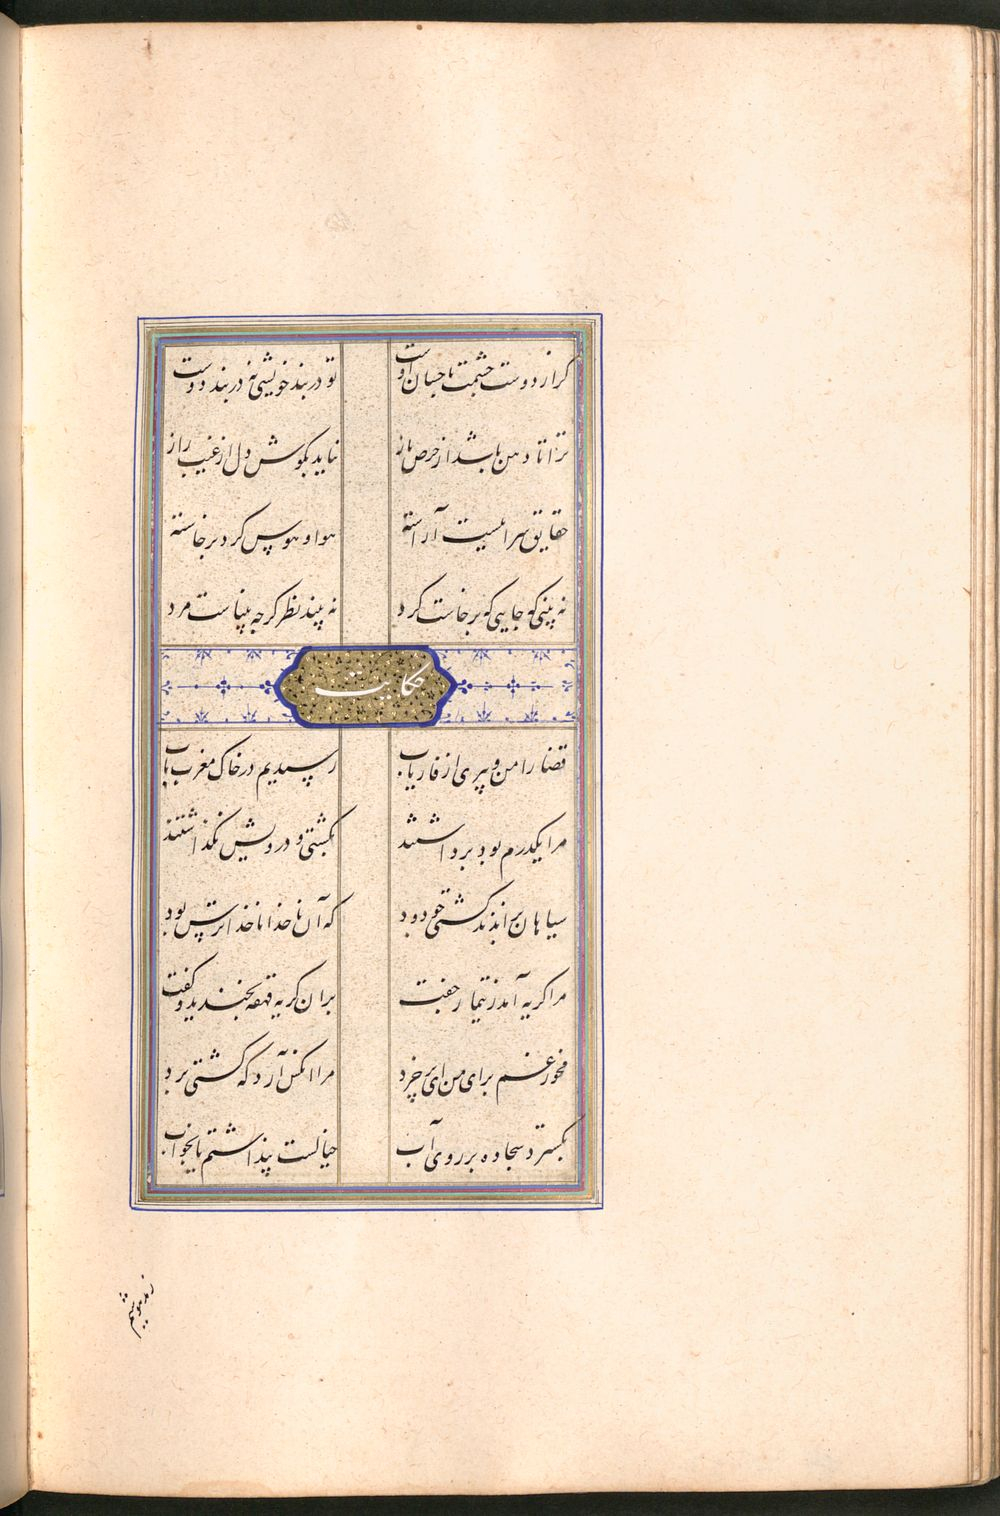 گر از دوست چشمت باحسان اوست تو در بند خویشی نه در بند دوست
ترا تا دهن باشد از حرص باز نیاید بگوش دل از غیب راز
حقایق سراییست آراسته هوا و هوس گرد برخاسته
نه بینی که جایی که برخاست گرد نه بیند نظر گرچه بیناست مرد
حکایت
قضا را من و پیری از فاریاب رسیدیم در خاک مغرب بآب
مرا یکدرم بود برداشتند بکشتی و درویش نگذاشتند
سیاهان براندند کشتی چو دود که آن ناخدا ناخدا ترس بود
مرا گریه آمد ز تیمار جفت بران گریه قهقه بخندید و گفت
مخور غم برای من ای پر خرد مرا آنکس آرد که کشتی برد
بگسترد سجاده بر روی آب خیالست پنداشتم یا بخواب
ز مدهوشیم